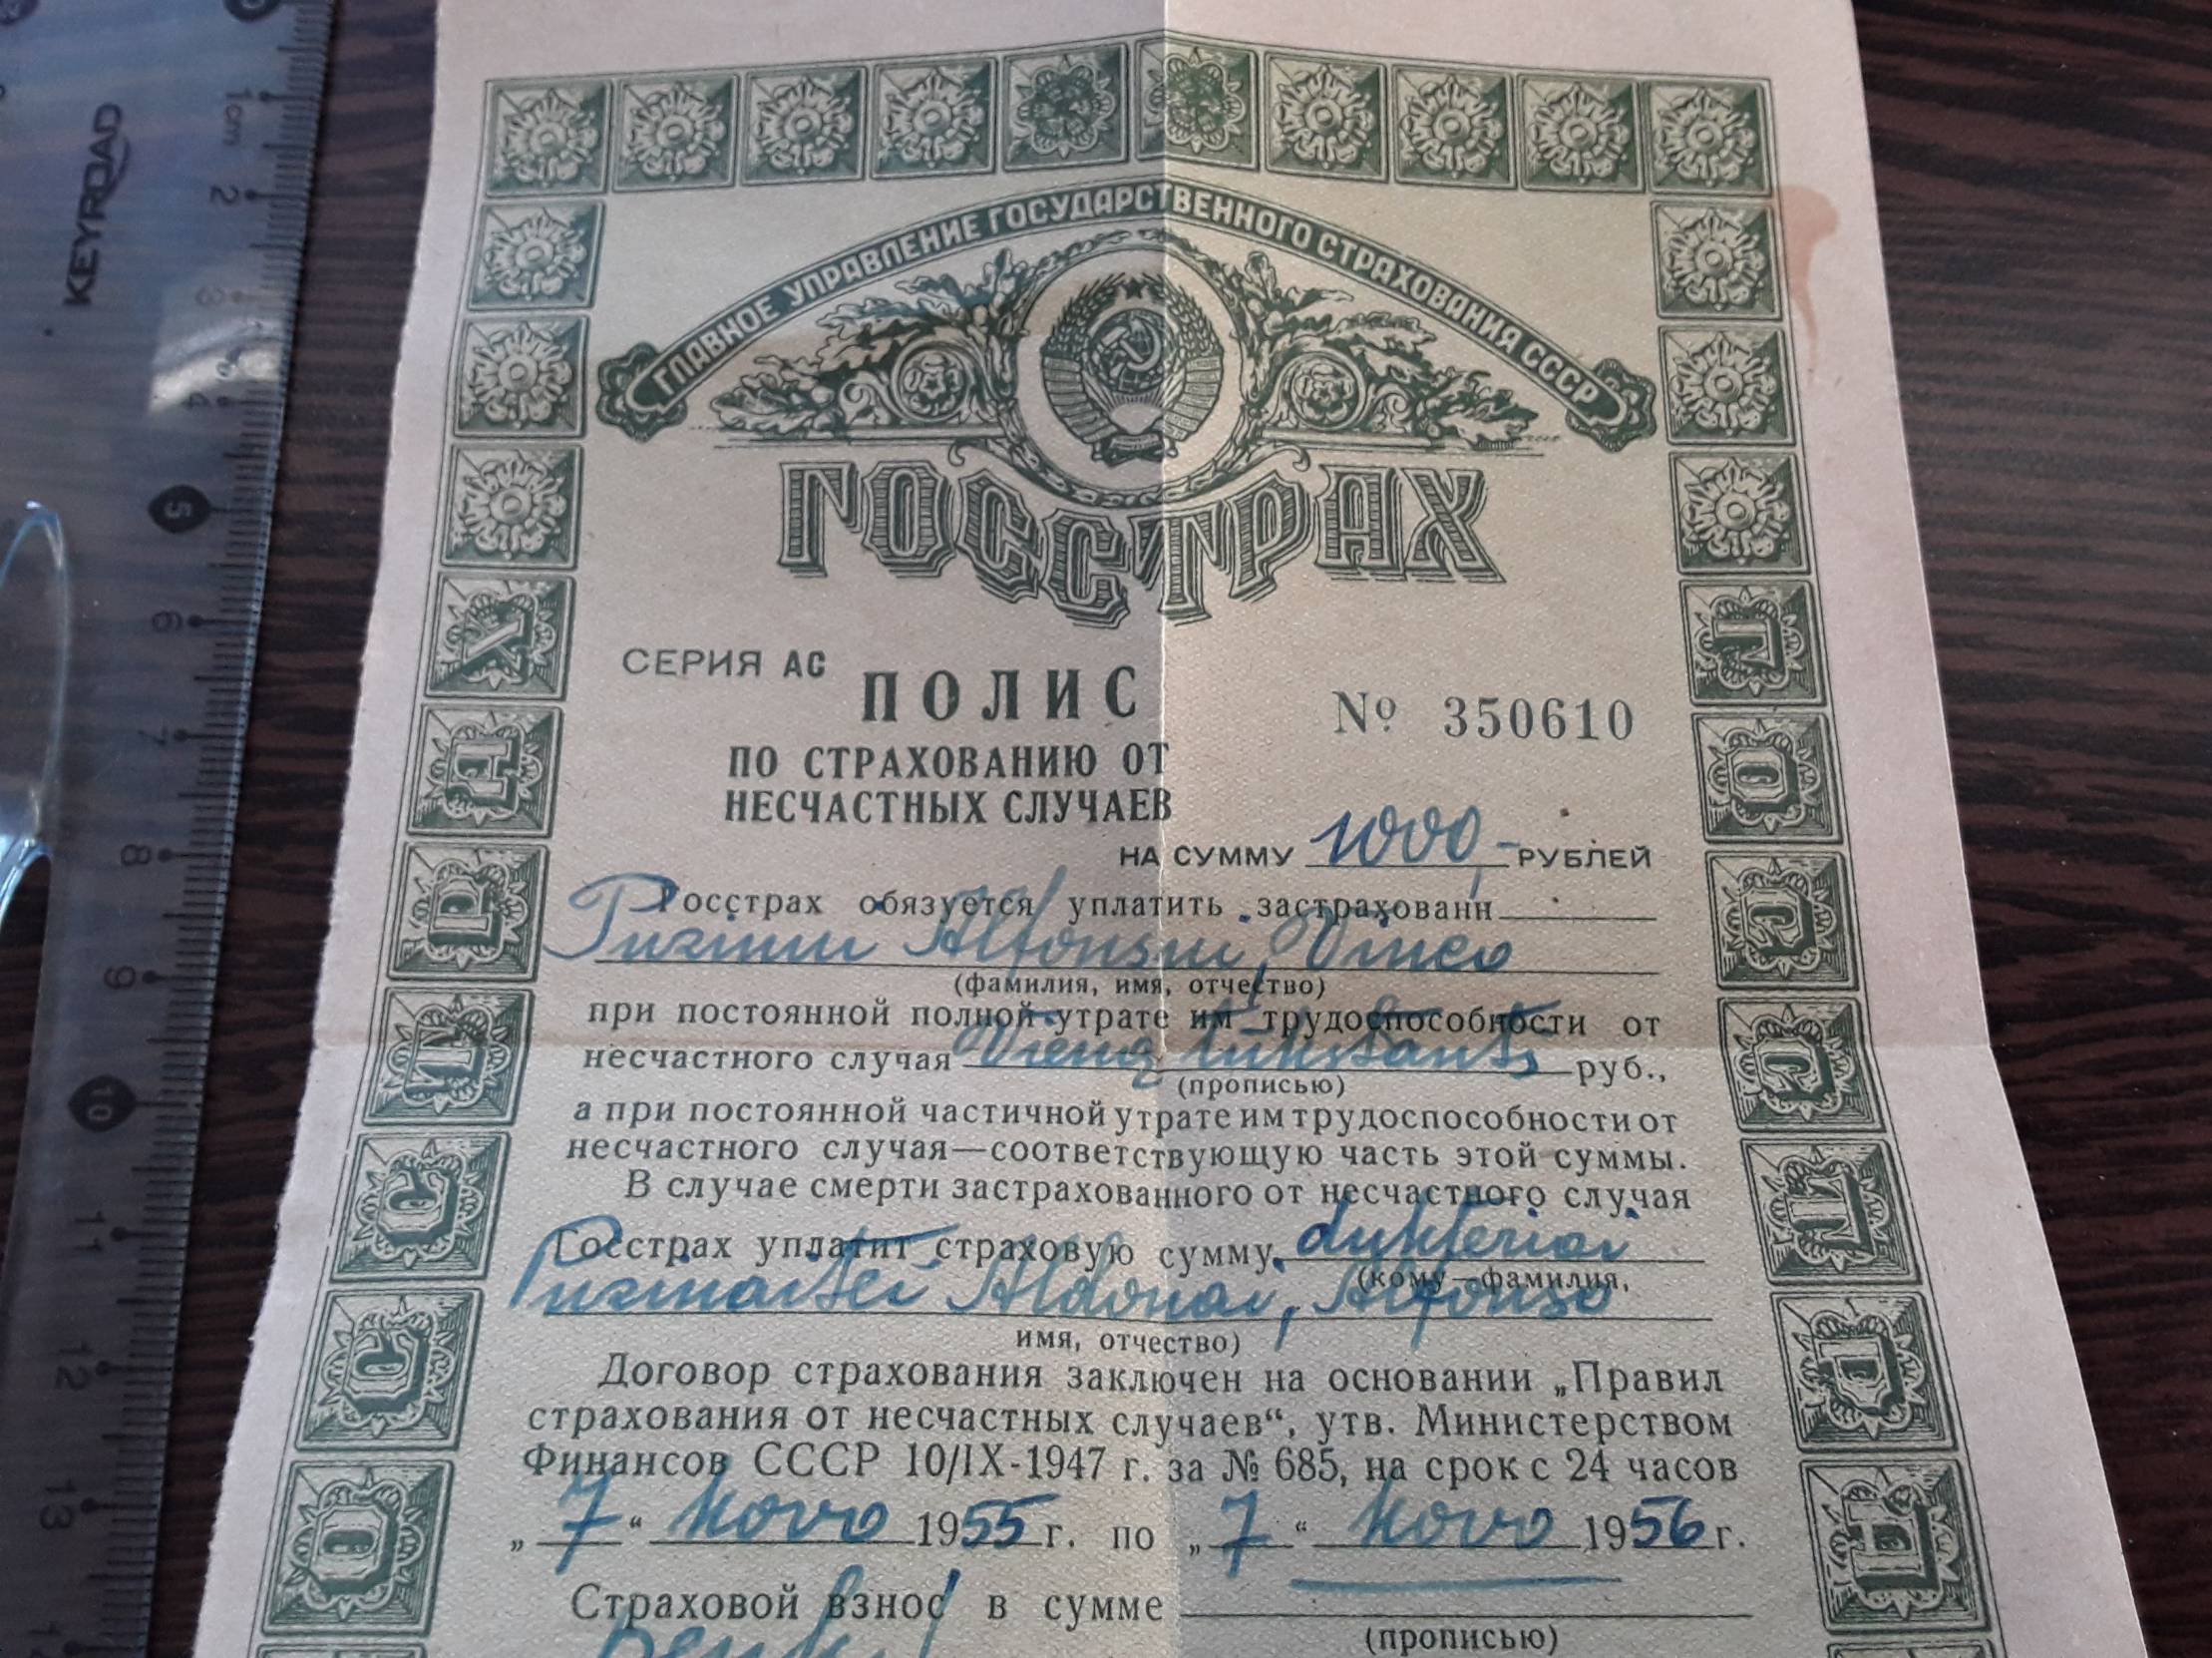 KEYROAD
1cm
2
3
4
5
6
7
8
9
10
11
12
13
ГЛАВНОЕ УПРАВЛЕНИЕ ГОСУДАРСТВЕННОГО СТРАХОВАНИЯ СССР
ГОССТРАХ
СЕРИЯ АС
ПОЛИС
№ 350610
ПО СТРАХОВАНИЮ ОТ
НЕСЧАСТНЫХ СЛУЧАЕВ
НА СУММУ 1000,- РУБЛЕЙ
Госстрах обязуется уплатить застрахованн
Puzinui Alfonsui, Vinco
(фамилия, имя, отчество)
при постоянной полной утрате им трудоспособности от
несчастного случая Vieną tūkstantį руб.,
(прописью)
а при постоянной частичной утрате им трудоспособности от
несчастного случая—соответствующую часть этой суммы.
В случае смерти застрахованного от несчастного случая
Госстрах уплатит страховую сумму dukteriai
(кому—фамилия,
Puzinaitei Aldonai, Alfonso
имя, отчество)
Договор страхования заключен на основании „Правил
страхования от несчастных случаев“, утв. Министерством
Финансов СССР 10/IX-1947 г. за № 685, на срок с 24 часов
„7“ kovo 1955 г. по „7“ kovo 1956 г.
Страховой взнос в сумме
(прописью)
ГОССТРАХ
ПОЛИС